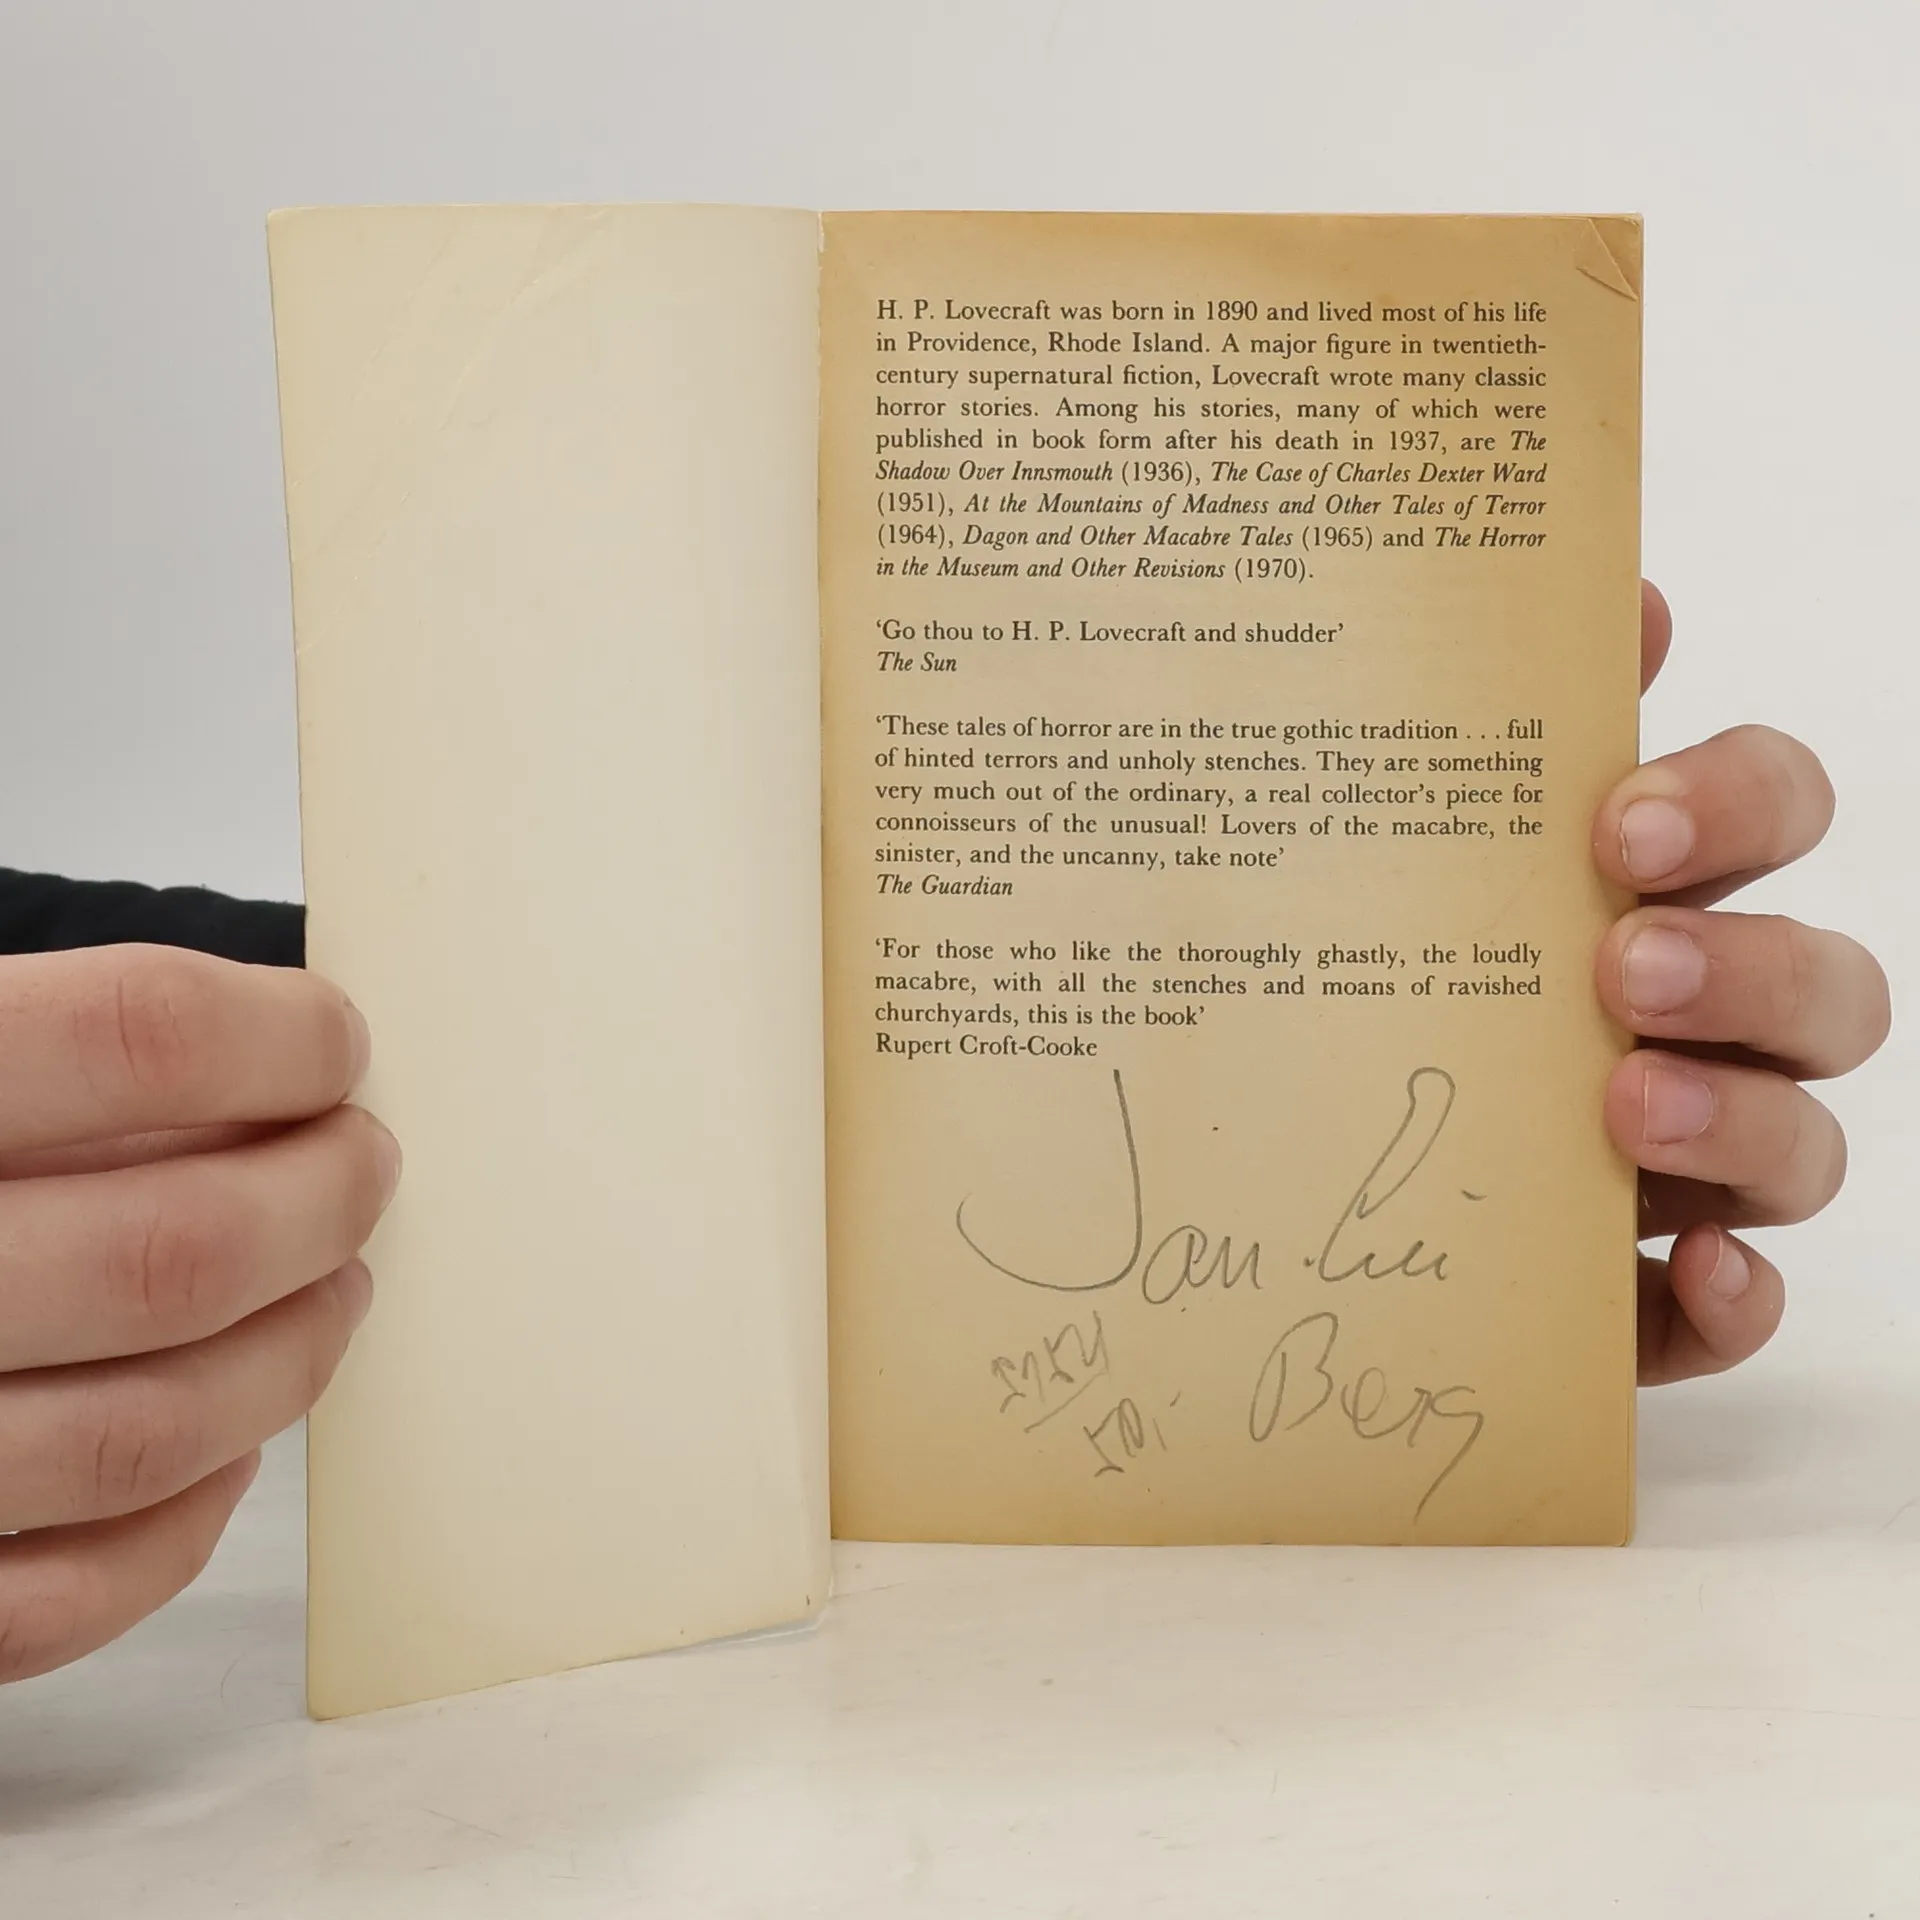 H. P. Lovecraft was born in 1890 and lived most of his life
in Providence, Rhode Island. A major figure in twentieth-
century supernatural fiction, Lovecraft wrote many classic
horror stories. Among his stories, many of which were
published in book form after his death in 1937, are The
Shadow Over Innsmouth (1936), The Case of Charles Dexter Ward
(1951), At the Mountains of Madness and Other Tales of Terror
(1964), Dagon and Other Macabre Tales (1965) and The Horror
in the Museum and Other Revisions (1970).
‘Go thou to H. P. Lovecraft and shudder’
The Sun
‘These tales of horror are in the true gothic tradition . . . full
of hinted terrors and unholy stenches. They are something
very much out of the ordinary, a real collector’s piece for
connoisseurs of the unusual! Lovers of the macabre, the
sinister, and the uncanny, take note’
The Guardian
‘For those who like the thoroughly ghastly, the loudly
macabre, with all the stenches and moans of ravished
churchyards, this is the book’
Rupert Croft-Cooke
Jan
Berg